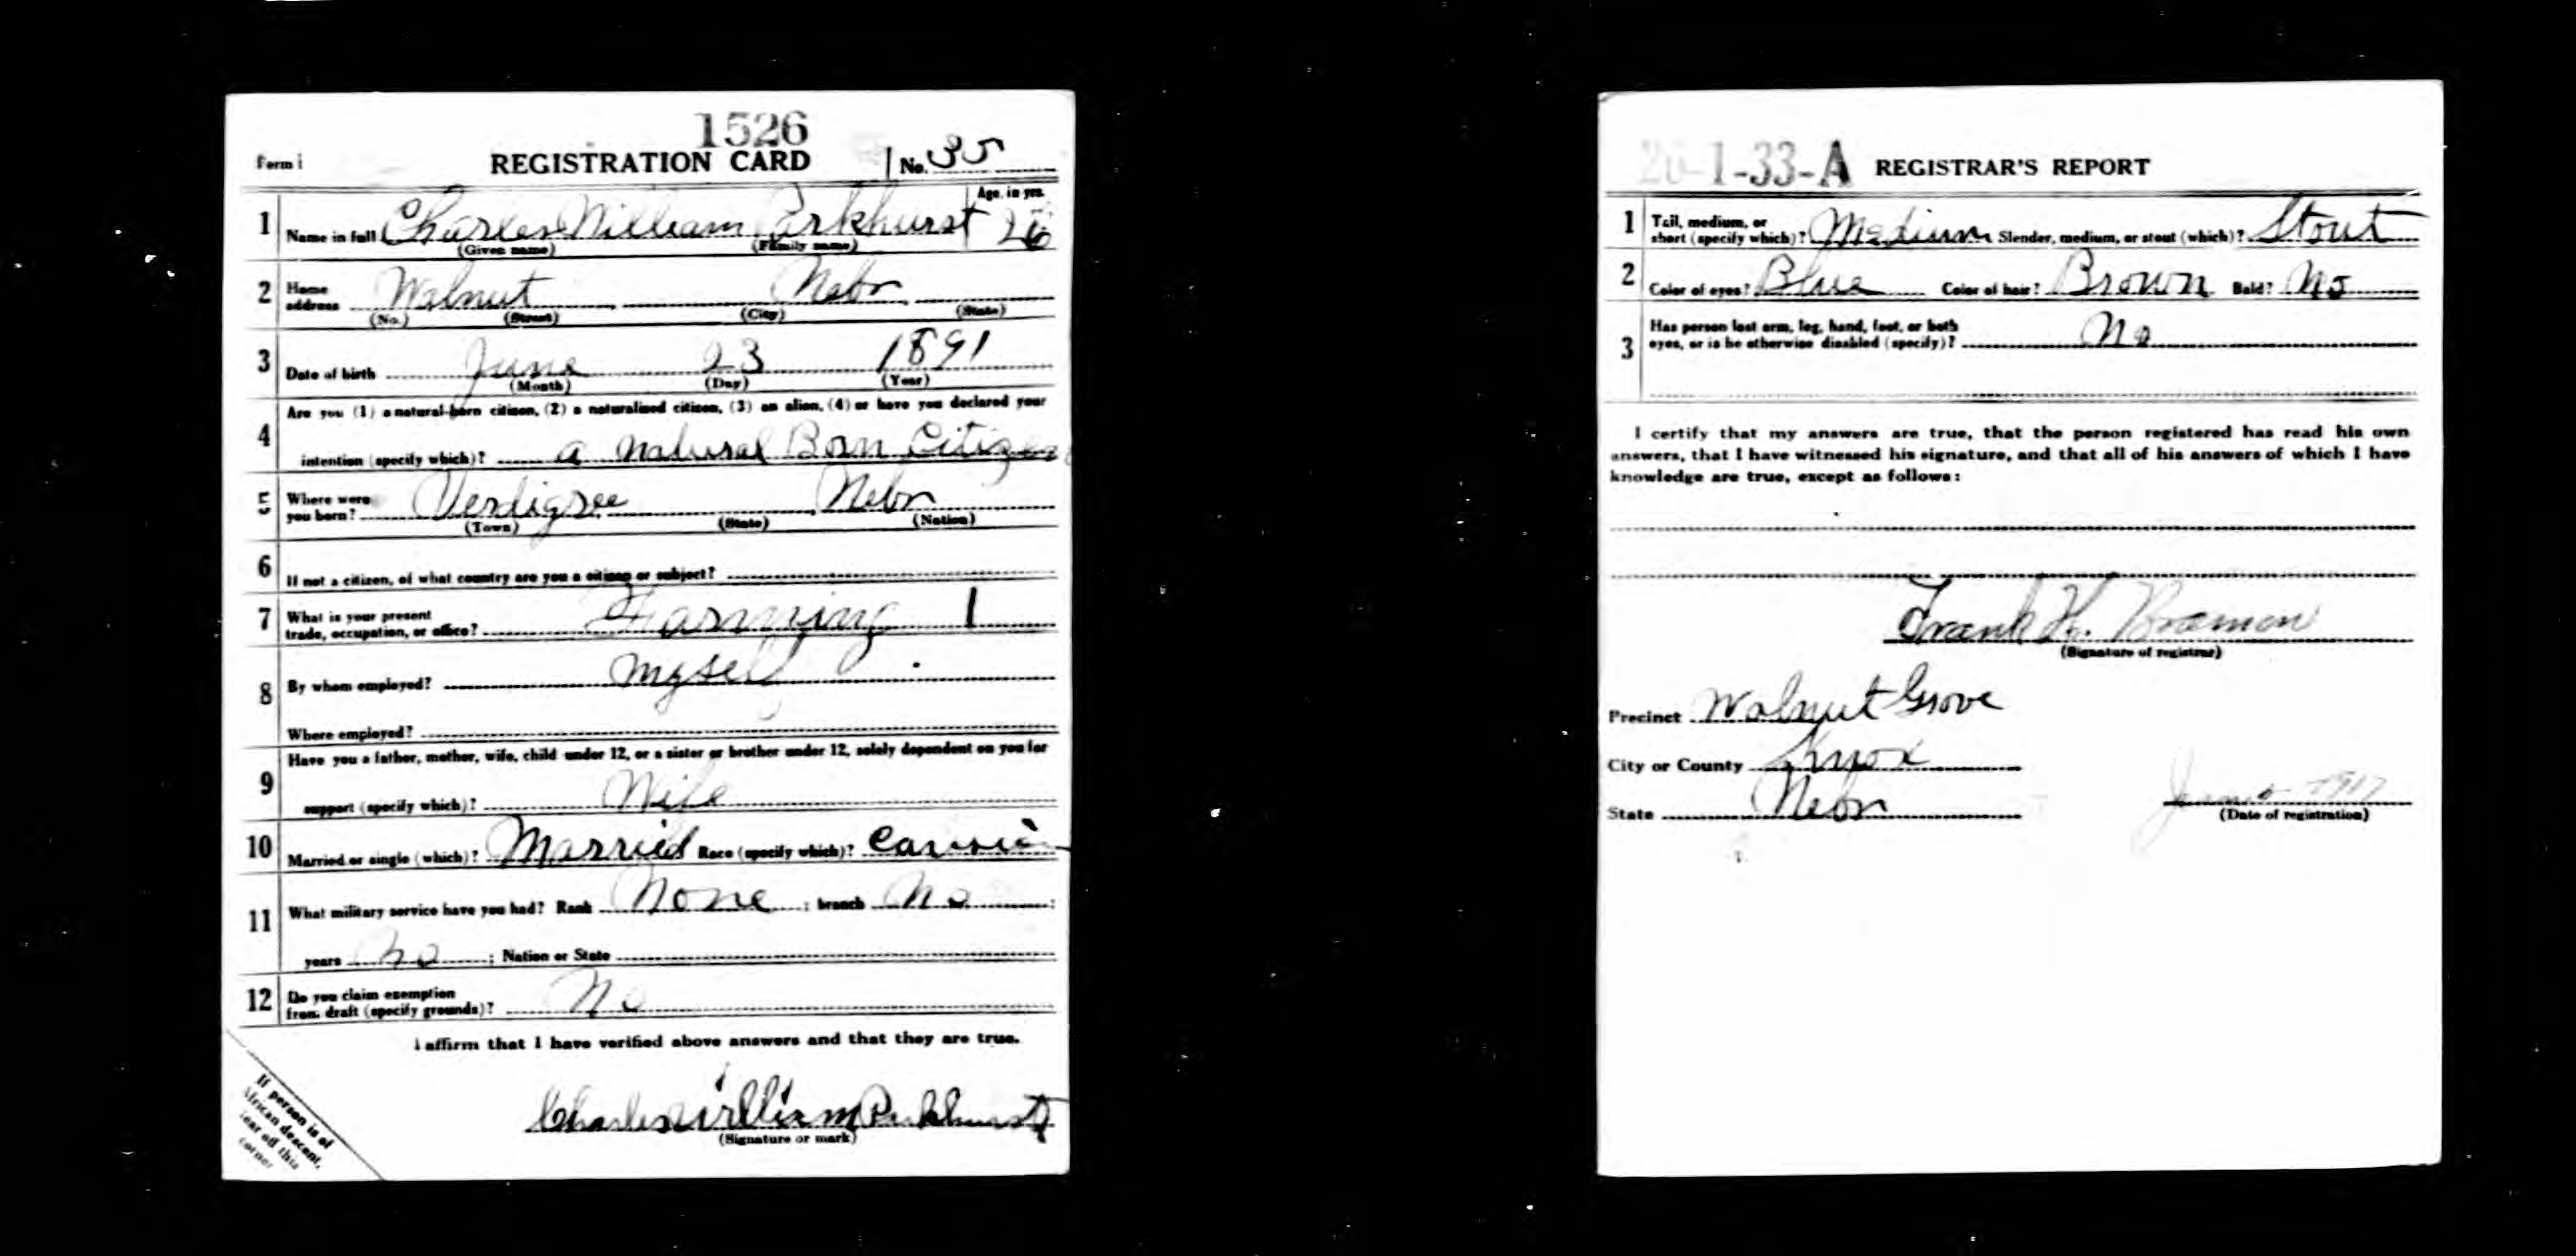 1526
Form 1 REGISTRATION CARD No. 35
Age, in yrs.
1 Name in full Charles William Parkhurst 26
(Given name) (Family name)
2 Home address Walnut Nebr
(No.) (Street) (City) (State)
3 Date of birth June 23 1891
(Month) (Day) (Year)
Are you (1) a natural-born citizen, (2) a naturalized citizen, (3) an alien, (4) or have you declared your
4 intention (specify which)? a natural Born Citizen
5 Where were you born? Verdigree Nebr
(Town) (State) (Nation)
6 If not a citizen, of what country are you a citizen or subject?
7 What is your present trade, occupation, or office? Farming 1
8 By whom employed? myself
Where employed?
Have you a father, mother, wife, child under 12, or a sister or brother under 12, solely dependent on you for
9 support (specify which)? Wife
10 Married or single (which)? Married Race (specify which)?
11 What military service have you had? Rank None ; branch No ;
years No ; Nation or State
12 Do you claim exemption from draft (specify grounds)? No
I affirm that I have verified above answers and that they are true.
Charles William Parkhurst
(Signature or mark)
If person is of
African descent,
tear off this
corner
20-1-33-A REGISTRAR'S REPORT
1 Tall, medium, or short (specify which)? Medium Slender, medium, or stout (which)? Stout
2 Color of eyes? Blue Color of hair? Brown Bald? No
3 Has person lost arm, leg, hand, foot, or both eyes, or is he otherwise disabled (specify)? No
I certify that my answers are true, that the person registered has read his own
answers, that I have witnessed his signature, and that all of his answers of which I have
knowledge are true, except as follows:
Frank H. Braman
(Signature of registrar)
Precinct Walnut Grove
City or County Knox
State Nebr
June 5 1917
(Date of registration)